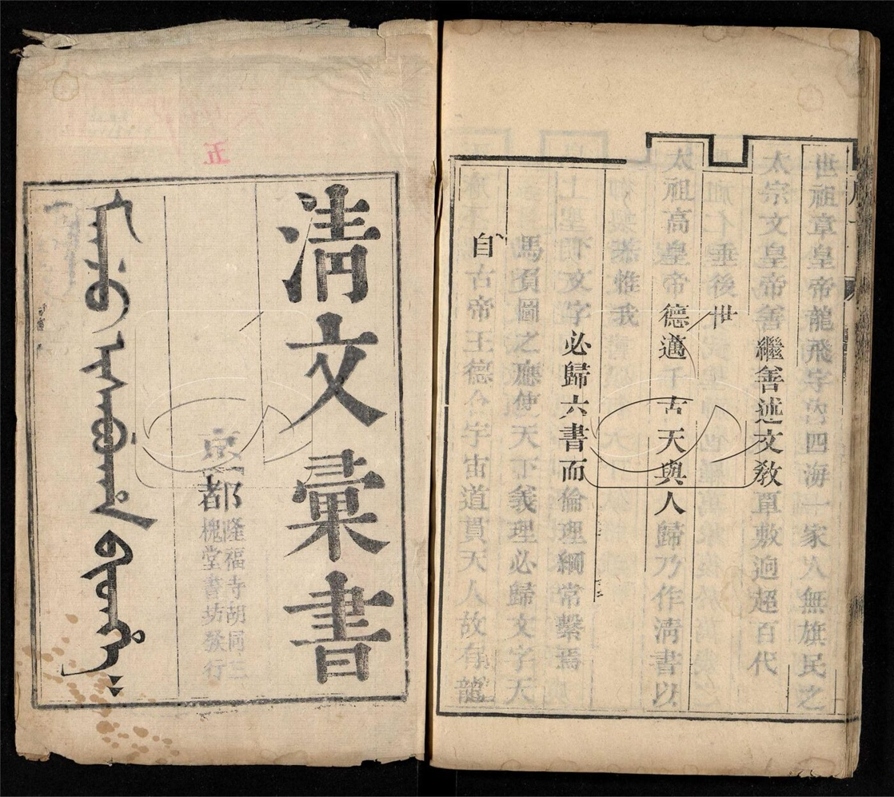 五
ᠮᠠᠨᠵᡠ ᡳᠰᠠᠪᡠᡥᠠ ᠪᡳᡨᡥᡝ
京都
隆福寺胡同三
槐堂書坊發行
清文彙書
自古帝王德合宇宙道貫天人故有龍
馬負圖之應使天下義理必歸文字天
下文字必歸六書而倫理綱常繫焉
恭惟我
太祖高皇帝德邁千古天與人歸乃作清書以
垂後世
太宗文皇帝善繼善述文敎覃敷逈超百代
世祖章皇帝龍飛字內四海一家人無旗民之